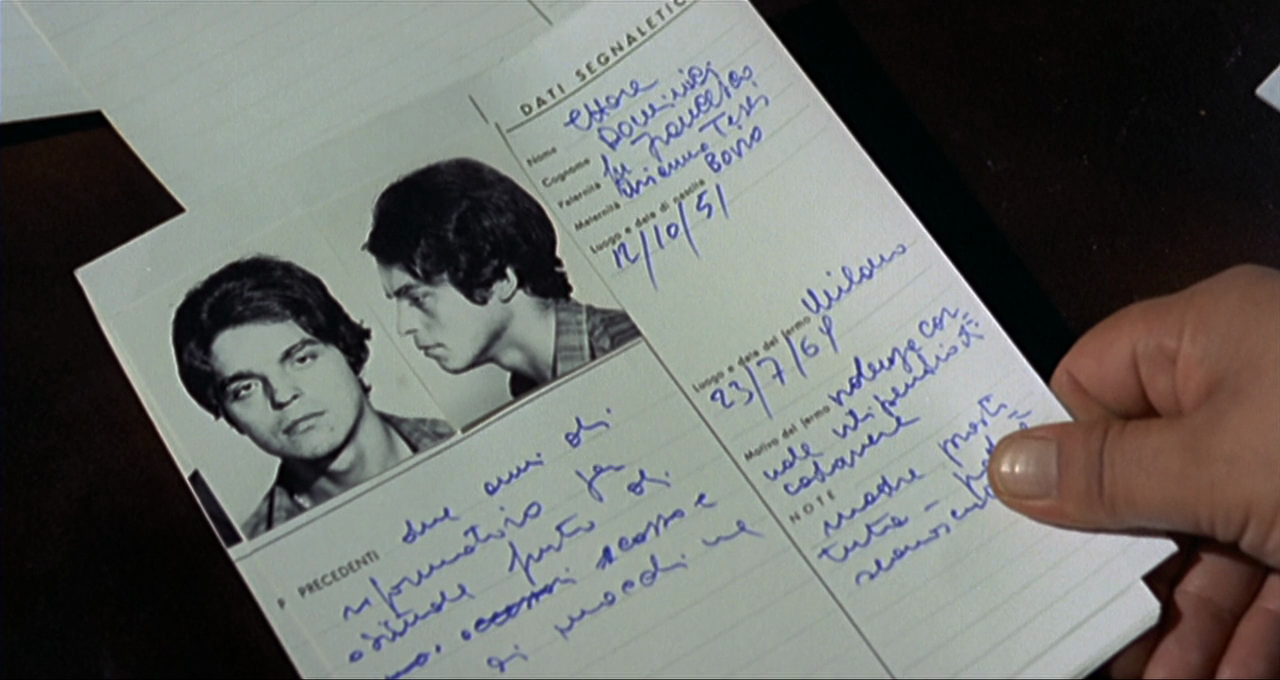 DATI SEGNALETIC
Nome Ettore
Cognome
Paternità fu Francesco
Maternità
Luogo e data di nascita
12/10/51
Luogo e data del fermo Milano
23/7/69
Motivo del fermo violenza car=
nale vilipendio di
cadavere
NOTE
madre prosti=
tuta -
P PRECEDENTI due anni di
riformatorio per
abituale furto di
scasso e
di macchine